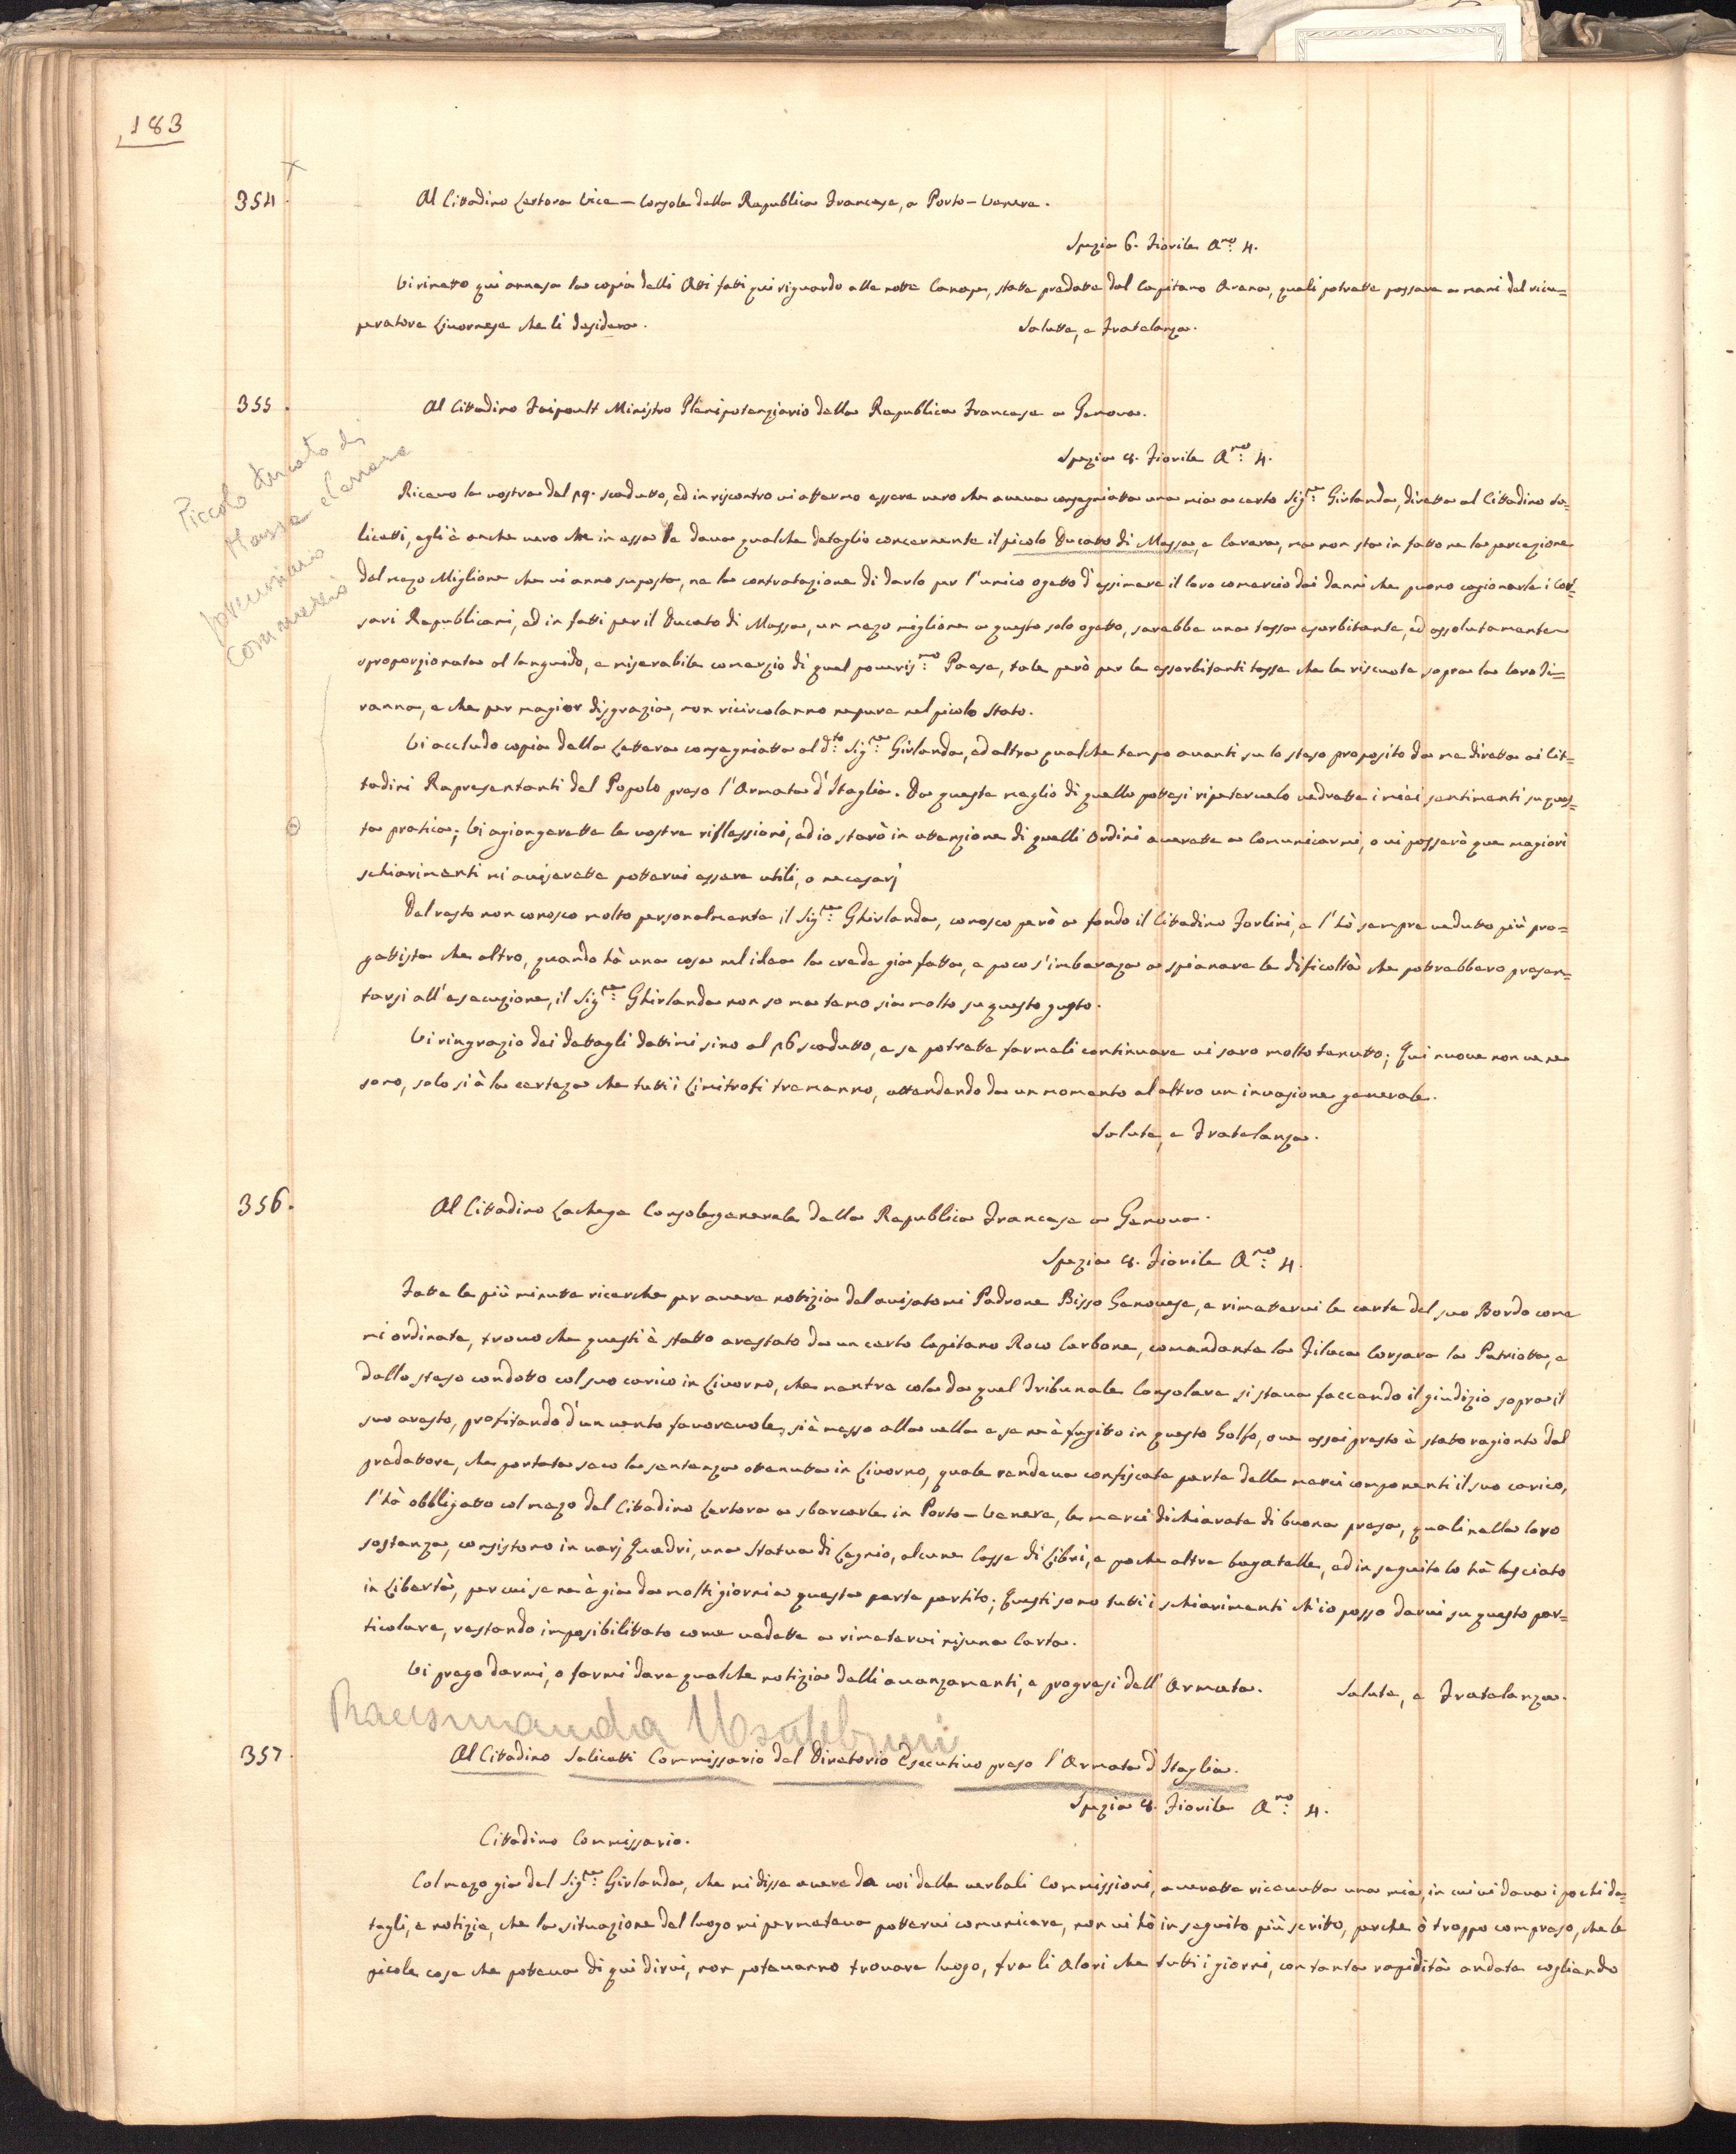 183
354.
Al Cittadino Lertora Vice-Console della Republica Francese, a Porto-Venere.
Spezia 6. Fiorile Ano: 4.
Vi rimetto qui annesa la copia delli Atti fatti qui riguardo alle notte Canape, statte predatte dal Capitano Arena, quali potrette passare a mani del ricu=
peratore Livornese che li desidera.
Salutte, e Fratelanza.
355.
Al Cittadino Faipoult Ministro Plenipotenziario della Republica Francese a Genova.
Spezia 8. Fiorile Ano: 4.
Piccolo ducato di
Massa e Carrara
commercio
Ricevo la vostra del 19. scadutto, ed in riscontro vi attermo essere vero che aveva consegniatta una mia a certo Sigre: Girlanda, diretta al Cittadino Sa=
licetti, egli è anche vero che in essa le dava qualche detaglio concernente il picolo Ducatto di Massa, e Carara, ma non sta in fatto ne la percezione
del mezo Miglione che vi anno suposto, ne la contratazione di darlo per l'unico ogetto d'essimere il loro comercio dai danni che puono cagionarle i Cor=
sari Republicani, ed in fatti per il Ducato di Massa, un mezo miglione a questo solo ogetto, sarebbe una tassa esorbitante, ed assolutamente
sproporzionata al languido, e miserabile comerzio di quel poveris:mo Paese, tale però per le essorbitanti tasse che le riscuote sopra la loro Ti=
ranna, e che per magior disgrazia, non ricircolanno nepure nel picolo Stato.
Vi accludo copia della Lettera consegniatta al dto: Sigre: Girlanda, ed altra qualche tempo avanti su lo steso proposito da me diretta ai Cit=
tadini Rapresentanti del Popolo preso l'Armata d'Itaglia. Da queste meglio di quello pottesi ripetervelo vedrette i miei sentimenti su ques=
ta pratica; Vi agiongerette le vostre riflessioni, ed io starò in attenzione di quelli Ordini averette a Comunicarmi, o vi passerò que magiori
schiarimenti mi aviserette pottervi essere utili, o necesarj
Del resto non conosco molto personalmente il Sigre: Ghirlanda, conosco però a fondo il Cittadino Forlini, e l'hò sempre vedutto più pro=
gettista che altro, quando hà una cosa nel idea la crede gia fatta, e poco s'imbaraza a spianare le dificoltà che potrebbero presen=
tarsi all'esecuzione, il Sigre: Ghirlanda non so ma temo sia molto su questo gusto.
Vi ringrazio dei dettagli dattimi sino al 16 scadutto, e se potrette farmeli continuare vi saro molto tenutto; Qui nuove non ve ne
sono, solo si à la certeza che tutti i Limitrofi tremanno, attendendo da un momento al altro un invasione generale.
Salute, e Fratelanza.
356.
Al Cittadino Lacheze Console generale della Republica Francese a Genova.
Spezia 8. Fiorile Ano: 4.
Fatte le più minutte ricerche per avere nottizia del avisatomi Padrone Bisso Genovese, e rimettervi le carte del suo Bordo come
mi ordinate, trovo che questi è statto arestato da un certo Capitano Roco Carbone, comandante la Filuca Corsara la Patriotta, e
dallo steso condotto col suo carico in Livorno, che mentre cola da quel Tribunale Consolare si stava faccendo il giudizio sopra il
suo aresto, profitando d'un vento favorevole, si è messo alla vella e se ne è fugitto in questo Golfo, ove assai presto è stato ragionto dal
predattore, che portata seco la sentenza ottenutta in Livorno, quale rendeva confiscate parte delle merci componenti il suo carico,
l'hà obbligatto col mezo del Cittadino Lertora a sbarcarle in Porto-Venere, le merci dichiarate di buona presa, quali nella loro
sostanza, consistono in varj Quadri, una Statua di Legnio, alcune Casse di Libri, e poche altre bagatelle, ed in seguito lo hà lasciato
in Libertà, per cui se ne è gia da molti giorni a questa parte partito; Questi sono tutti i schiarimenti ch'io posso darvi su questo par=
ticolare, restando imposibilittato come vedette a rimetervi nisuna Carta.
Vi prego darmi, o farmi dare qualche notizia delli avanzamenti, e progresi dell'Armata.
Salute, e Fratelanza.
357.
Al Cittadino Salicetti Commissario del Diretorio Esecutivo preso l'Armata d'Itaglia.
Spezia 8. Fiorile Ano: 4.
Cittadino Commissario.
Col mezo gia del Sigre: Girlanda, che mi disse avere da voi delle verbali Commissioni, averette ricevutta una mia, in cui vi dava i pochi de=
tagli, e notizie, che la situazione del luogo mi permeteva pottervi comunicare, non vi hò in seguito più scritto, perche ò troppo compreso, che le
picole cose che potteva di qui dirvi, non potevanno trovare luogo, fra li Alori che tutti i giorni, con tanta rapidità andate cogliendo